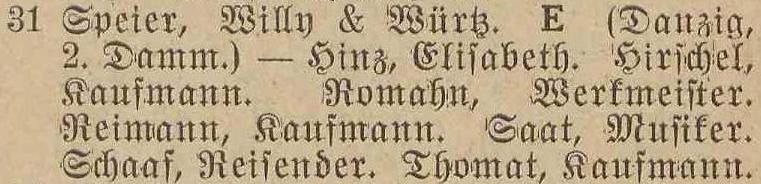 31 Speier, Willy & Würtz. E (Danzig,
2. Damm.) — Hinz, Elisabeth. Hirschel,
Kaufmann. Romahn, Werkmeister.
Reimann, Kaufmann. Saat, Musiker.
Schaaf, Reisender. Thomat, Kaufmann.